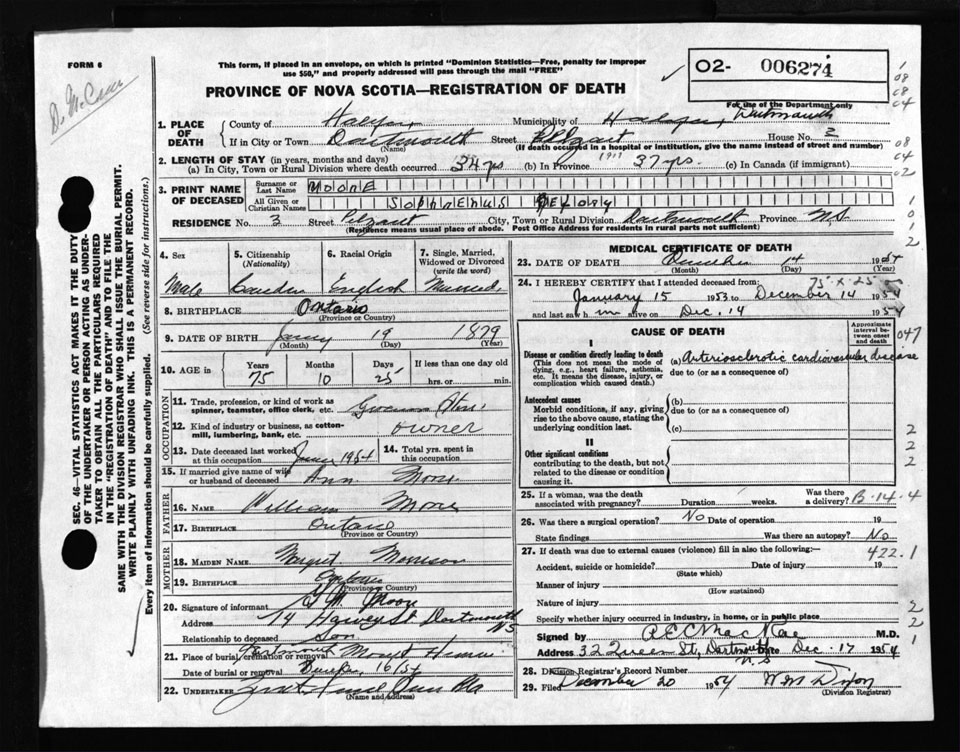 FORM 6
D. McCuur
This form, if placed in an envelope, on which is printed "Dominion Statistics—Free, penalty for improper
use $50," and properly addressed will pass through the mail "FREE"
PROVINCE OF NOVA SCOTIA—REGISTRATION OF DEATH
02- 006274
For use of the Department only
1. PLACE OF DEATH
County of Halifax Municipality of Halifax, Dartmouth
If in City or Town Dartmouth Street House No. 3
(Name) (If death occurred in a hospital or institution, give the name instead of street and number)
2. LENGTH OF STAY (in years, months and days)
(a) In City, Town or Rural Division where death occurred 34 yrs (b) In Province 37 yrs. (c) In Canada (if immigrant)
3. PRINT NAME OF DECEASED
Surname or Last Name MOORE
All Given or Christian Names SOPHRENUS
RESIDENCE No. 3 Street City, Town or Rural Division Dartmouth Province N.S.
(Residence means usual place of abode. Post Office Address for residents in rural parts not sufficient)
4. Sex
Male
5. Citizenship
(Nationality)
6. Racial Origin
English
7. Single, Married,
Widowed or Divorced
(write the word)
Married
8. BIRTHPLACE Ontario
(Province or Country)
9. DATE OF BIRTH 19 1879
(Month) (Day) (Year)
10. AGE in
Years Months Days If less than one day
75 10 25 hrs. or min.
OCCUPATION
11. Trade, profession, or kind of work as
spinner, teamster, office clerk, etc.
12. Kind of industry or business, as cotton-
mill, lumbering, bank, etc. owner
13. Date deceased last worked
at this occupation 1954
14. Total yrs. spent in
this occupation
15. If married give name of wife
or husband of deceased Ann Moore
FATHER
16. NAME William Moore
17. BIRTHPLACE Ontario
(Province or Country)
MOTHER
18. MAIDEN NAME Morrison
19. BIRTHPLACE Ontario
(Province or Country)
20. Signature of informant Moore
Address 74 Harvey St Dartmouth NS
Relationship to deceased Son
21. Place of burial, cremation or removal Dartmouth
Date of burial or removal 16/54
22. UNDERTAKER
(Name and address)
MEDICAL CERTIFICATE OF DEATH
23. DATE OF DEATH December 14 1954
(Month) (Day) (Year)
24. I HEREBY CERTIFY that I attended deceased from
75-X-25
January 15 1953 to December 14 1954
and last saw h im alive on Dec. 14 1954
CAUSE OF DEATH
Approximate
interval be-
tween onset
and death
I
Disease or condition directly leading to death
(This does not mean the mode of
dying, e.g., heart failure, asthenia,
etc. It means the disease, injury, or
complication which caused death.)
(a) Arteriosclerotic cardiovascular disease
due to (or as a consequence of)
Antecedent causes
Morbid conditions, if any, giving
rise to the above cause, stating the
underlying condition last.
(b)
due to (or as a consequence of)
(c)
II
Other significant conditions
contributing to the death, but not
related to the disease or condition
causing it.
25. If a woman, was the death
associated with pregnancy? Duration weeks. Was there
a delivery? B-14-4
26. Was there a surgical operation? No Date of operation 19
State findings Was there an autopsy? No
27. If death was due to external causes (violence) fill in also the following:—
422.1
Accident, suicide or homicide? Date of injury 19
(State which)
Manner of injury
(How sustained)
Nature of injury
Specify whether injury occurred in industry, in home, or in public place
Signed by A E C MacRae M.D.
Address 32 Queen St, Dartmouth N.S. Dec. 17 1954
28. Division Registrar's Record Number
29. Filed December 20 1954 W M Dixon
(Division Registrar)
SEC. 46—VITAL STATISTICS ACT MAKES IT THE DUTY
OF THE UNDERTAKER OR PERSON ACTING AS UNDER-
TAKER TO OBTAIN ALL THE PARTICULARS REQUIRED
IN THE "REGISTRATION OF DEATH" AND TO FILE THE
SAME WITH THE DIVISION REGISTRAR WHO SHALL ISSUE THE BURIAL PERMIT.
WRITE PLAINLY WITH UNFADING INK. THIS IS A PERMANENT RECORD.
Every item of information should be carefully supplied. (See reverse side for instructions.)
1
08
08
04
08
04
02
1
0
1
2
047
2
2
2
2
2
1